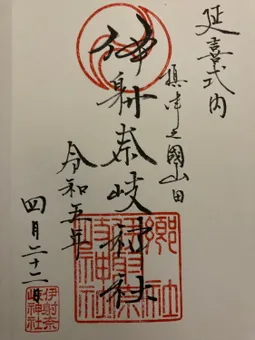 延喜式内
摂津之國山田
伊射奈岐神社
令和五年
四月二十二日
郷社
伊射奈
岐神社
伊射奈
岐神社